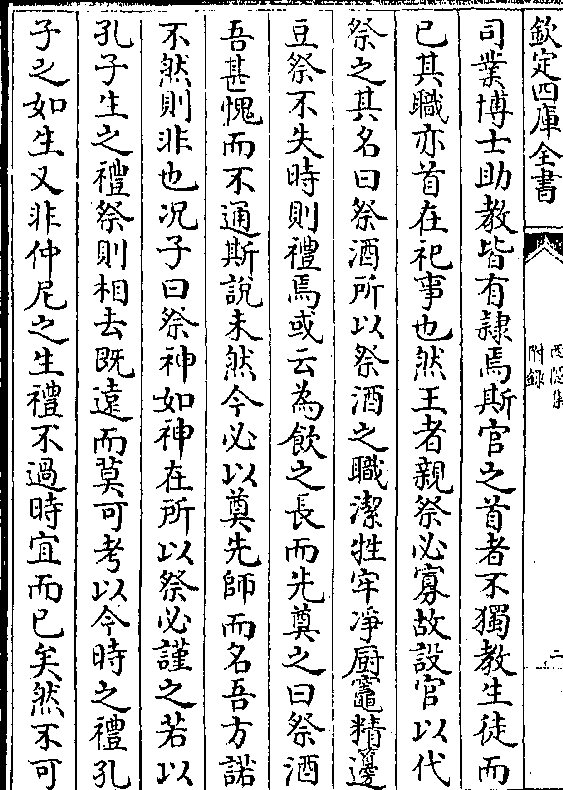 欽定四庫全書
西隱集
附録
二
司業博士助教皆有隷焉斯官之首者不獨教生徒而
已其職亦首在祀事也然王者親祭必寡故設官以代
祭之其名曰祭酒所以祭酒之職潔牲牢凈厨竈精籩
豆祭不失時則禮焉或云為飲之長而先奠之曰祭酒
吾甚愧而不通斯說未然今必以奠先師而名吾方諾
不然則非也况子曰祭神如神在所以祭必謹之若以
孔子生之禮祭則相去既遠而莫可考以今時之禮孔
子之如生又非仲尼之生禮不過時宜而已矣然不可